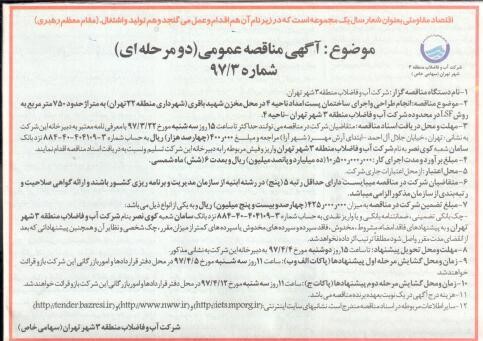 اقتصاد مقاومتی بعنوان شعار سال یک مجموعه است که در زیر نام آن هم اقدام و عمل می گنجد و هم تولید و اشتغال. (مقام معظم رهبری)
موضوع: آگهی مناقصه عمومی (دو مرحله ای)
شماره ۹۷/۳
شرکت آب و فاضلاب منطقه ۳
شهر تهران (سهامی خاص)
۱- نام دستگاه مناقصه گزار: شرکت آب و فاضلاب منطقه ۳ شهر تهران.
۲- موضوع مناقصه: انجام طراحی و اجرای ساختمان پست امداد ناحیه ۴ در محل مخزن شهید باقری (شهرداری منطقه ۲۲ تهران) به متراژ حدود ۷۵۰ متر مربع به
روش LSF در محدوده شرکت آب و فاضلاب منطقه ۳ شهر تهران - ناحیه ۴.
۳- مهلت و محل دریافت اسناد مناقصه: متقاضیان شرکت در مناقصه می توانند حداکثر تا ساعت ۱۵ روز سه شنبه مورخ با معرفی نامه معتبر به دبیرخانه این شرکت
به نشانی: تهران - خیابان جلال آل احمد - ابتدای آرش مهر (شهرآرا) مراجعه و مبلغ ۴۰۰,۰۰۰ (چهارصد هزار) ریال به حساب شماره نزد بانک
سامان شعبه کوی نصر به نام شرکت آب و فاضلاب منطقه ۳ شهر تهران واریز و فیش مربوطه را به دبیرخانه این شرکت تسلیم و نسبت به دریافت اسناد مناقصه اقدام نمایند.
۴- مبلغ برآورد و مدت اجرای کار: (ده میلیارد و پانصد میلیون) ریال و بمدت ۶ (شش) ماه شمسی.
۵- محل اعتبار: از محل اعتبارات جاری شرکت.
۶- متقاضیان شرکت در مناقصه میبایست دارای حداقل رتبه ۵ (پنج) در رشته ابنیه از سازمان مدیریت و برنامه ریزی کشور باشند و ارائه گواهی صلاحیت و
رتبه بندی از سازمان مذکور الزامی میباشد.
۷- مبلغ تضمین شرکت در مناقصه به میزان (چهارصد و بیست و پنج میلیون) ریال و به یکی از انواع ذیل می باشد.
- چک بانکی تضمینی، ضمانتنامه بانکی و یا واریز نقدی به حساب شماره نزد بانک سامان شعبه کوی نصر به نام شرکت آب و فاضلاب منطقه ۳ شهر
تهران و به پیشنهادهای فاقد امضاء، مشروط، مخدوش، فاقد سپرده و سپرده های مخدوش یا سپرده های کمتر از میزان مقرر، چک شخصی و نظایر آن و همچنین پیشنهاداتی که بعد
از انقضای مدت مقرر واصل شود مطلقاً ترتیب اثر داده نخواهد شد.
۸- مهلت و محل تحویل پیشنهاد: تا ساعت ۱۵ روز دوشنبه مورخ ۹۷/۴/۴ به دبیرخانه این شرکت به نشانی مذکور.
۹- زمان و محل گشایش مرحله اول پیشنهادها (پاکات الف و ب): ساعت ۱۱ روز سه شنبه مورخ ۹۷/۴/۵ در محل دفتر قراردادها و امور بازرگانی این شرکت بازو قرائت
خواهند شد.
۱۰- زمان و محل گشایش مرحله دوم پیشنهادها (پاکات ج): ساعت ۱۱ روز سه شنبه مورخ ۹۷/۴/۱۲ در محل دفتر قراردادها و امور بازرگانی این شرکت بازو قرائت خواهند شد.
۱۱- هزینه درج آگهی در یک نوبت بعهده برنده مناقصه می باشد.
۱۲- سایر اطلاعات مربوطه در اسناد مناقصه مندرج است. نشانیهای سایت اینترنتی: (http://iets.mporg.ir) و (http://www.nww.ir) و (http://tender.bazresi.ir)
شرکت آب و فاضلاب منطقه ۳ شهر تهران (سهامی خاص)